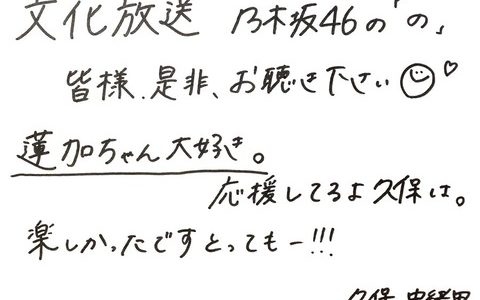 文化放送 乃木坂46の「の」
皆様、是非、お聴き下さい
蓮加ちゃん大好き。
応援してるよ久保は。
楽しかったですとってもー!!!
久保